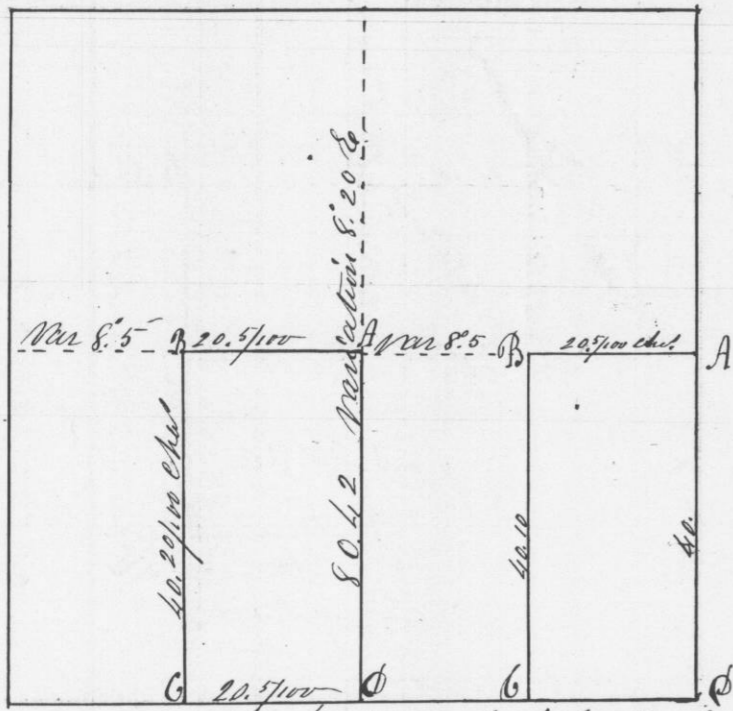 Variation 8°.20 E
Var 8°.5
B
20.5/100
A
Var 8°.5
B
20.5/100 chs.
A
40.20/100 chs
80.42
40.10
40.
C
20.5/100
D
C
D